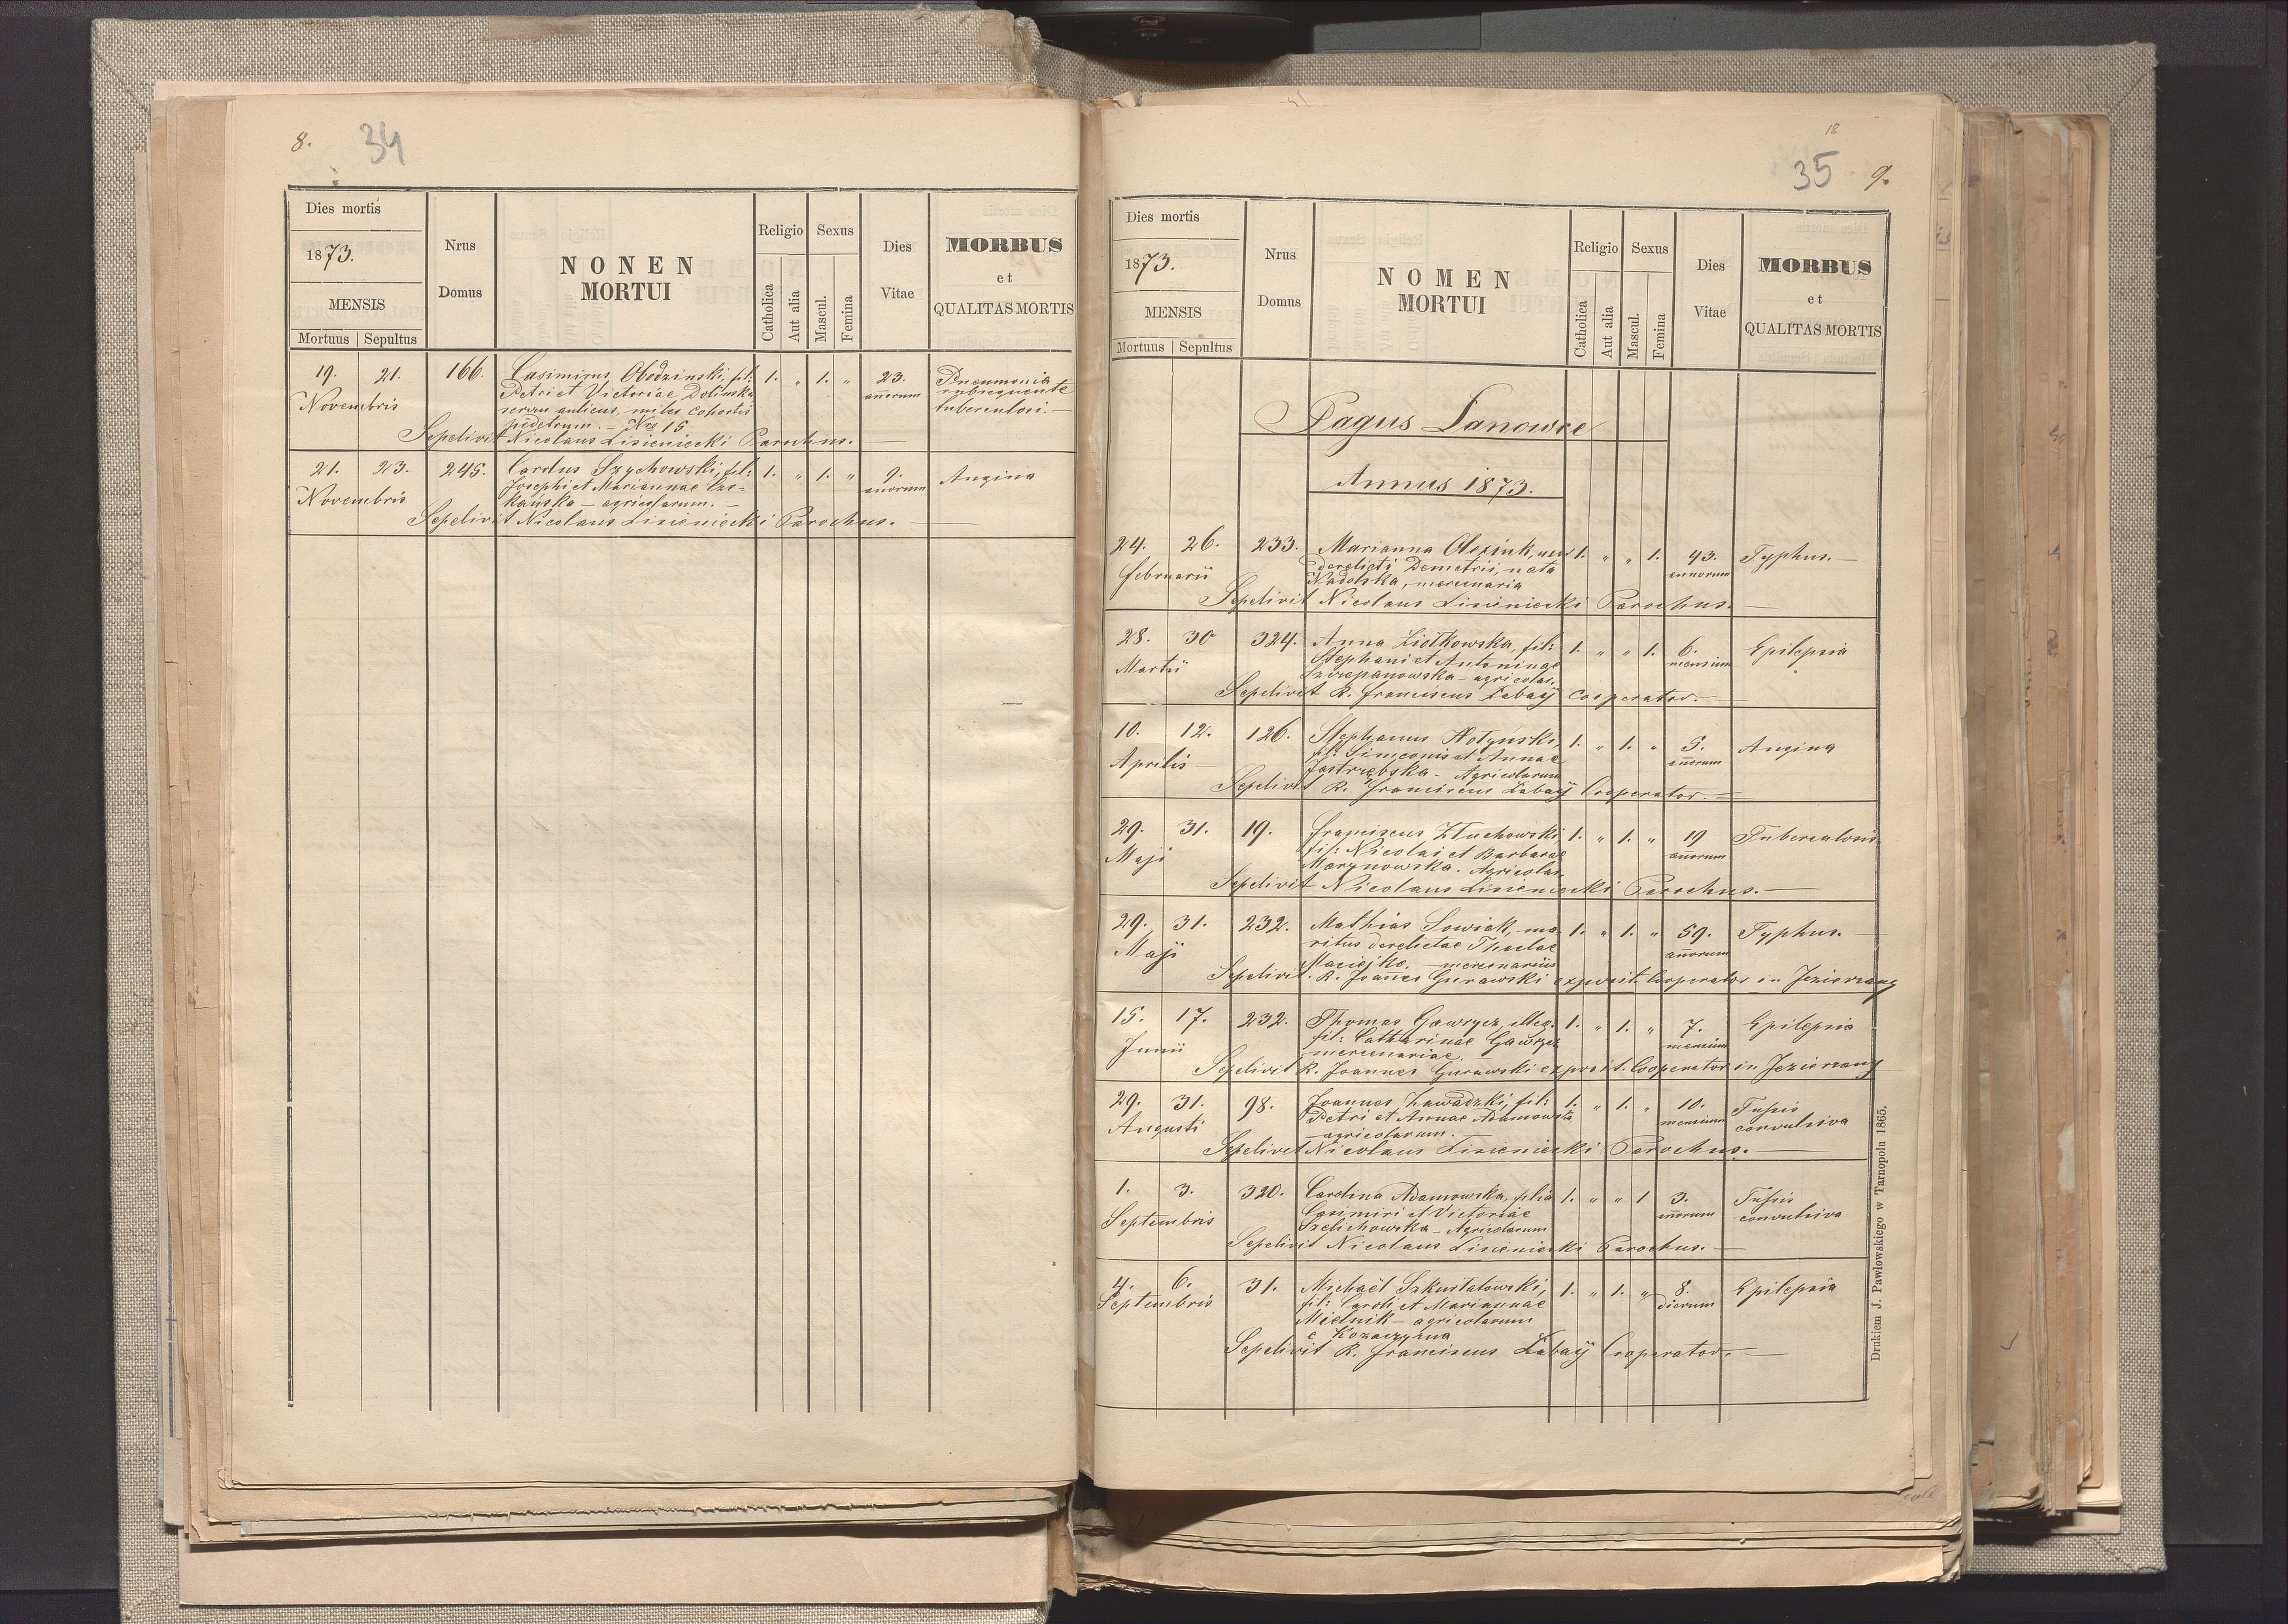 8. 34
Dies mortis
1873.
MENSIS
Mortuus Sepultus
Nrus
Domus
NONEN
MORTUI
Religio
Catholica
Aut alia
Sexus
Mascul.
Femina
Dies
Vitae
MORBUS
et
QUALITAS MORTIS
19. 21. 166. Casimirus Obodzinski, fil: 1. " 1. " 23. Pneumonia
Novembris Petri et Victoriae Dolinska anorum subsequente
miles cohortis tuberculosi. —
No 15
Sepelivit Nicolaus Lisieniecki Parochus. —
21. 23. 245. Carolus Szychowski, fil: 1. " 1. " 9. Angina
Novembris Josephi et Mariannae Cze- anorum
kańska — agricolarum. —
Sepelivit Nicolaus Lisieniecki Parochus. —
18
35 9.
Dies mortis
1873.
MENSIS
Mortuus Sepultus
Nrus
Domus
NOMEN
MORTUI
Religio
Catholica
Aut alia
Sexus
Mascul.
Femina
Dies
Vitae
MORBUS
et
QUALITAS MORTIS
Pagus Lanowce
Annus 1873.
24. 26. 233. Marianna Olexiuk, uxor 1. " " 1. 43. Typhus. —
februarii derelicti Demetrii, nata annorum
Nadolska, mercenaria
Sepelivit Nicolaus Lisieniecki Parochus. —
28. 30 324. Anna Ziołkowska, fil: 1. " " 1. 6. Epilepsia
Martii Stephani et Antoninae mensium
Szczepanowska — agricolar.
Sepelivit R. franciscus Łabaÿ Cooperator. —
10. 12. 126. Stephanus Hotyński, 1. " 1. " 5. Angina
Aprilis fil: Simeonis et Annae anorum
Jastrzębska — Agricolarum
Sepelivit R. Franciscus Łabaÿ Cooperator. —
29. 31. 19. Franciscus Tłuchowski 1. " 1. " 19 Tuberculosis
Maji fil: Nicolai et Barbarae anorum
Marynowska. Agricolar.
Sepelivit Nicolaus Lisieniecki Parochus. —
29. 31. 232. Mathias Sowiak, ma- 1. " 1. " 59. Typhus. —
Maji ritus derelictae Theclae anorum
Maciejko. mercenariis
Sepelivit. R. Joannes Gurawski exposit. Cooperator in Jezierzany
15. 17. 232. Thomas Gawrycz, illeg. 1. " 1. " 7. Epilepsia
Junii fil: Catharinae Gawrycz mensium
mercenariae. —
Sepelivit R. Joannes Gurawski exposit. Cooperator in Jezierzany
29. 31. 98. Joannes Zawadzki, fil: 1. " 1. " 10. Tussis
Augusti Petri et Annae Adamowska mensium convulsiva
— agricolarum. —
Sepelivit Nicolaus Lisieniecki Parochus. —
1. 3. 320. Carolina Adamowska, filia 1. " " 1 3. Tussis
Septembris Casimiri et Victoriae anorum convulsiva
Szelichowska — Agricolarum
Sepelivit Nicolaus Lisieniecki Parochus. —
4. 6. 31. Michaël Szkustatowski, 1. " 1. " 8. Epilepsia
Septembris fil: Caroli et Mariannae dierum
Mielnik — agricolarum
e Kozaczyzna
Sepelivit R. Franciscus Łabaÿ Cooperator. —
Drukiem J. Pawłowskiego w Tarnopolu 1865.